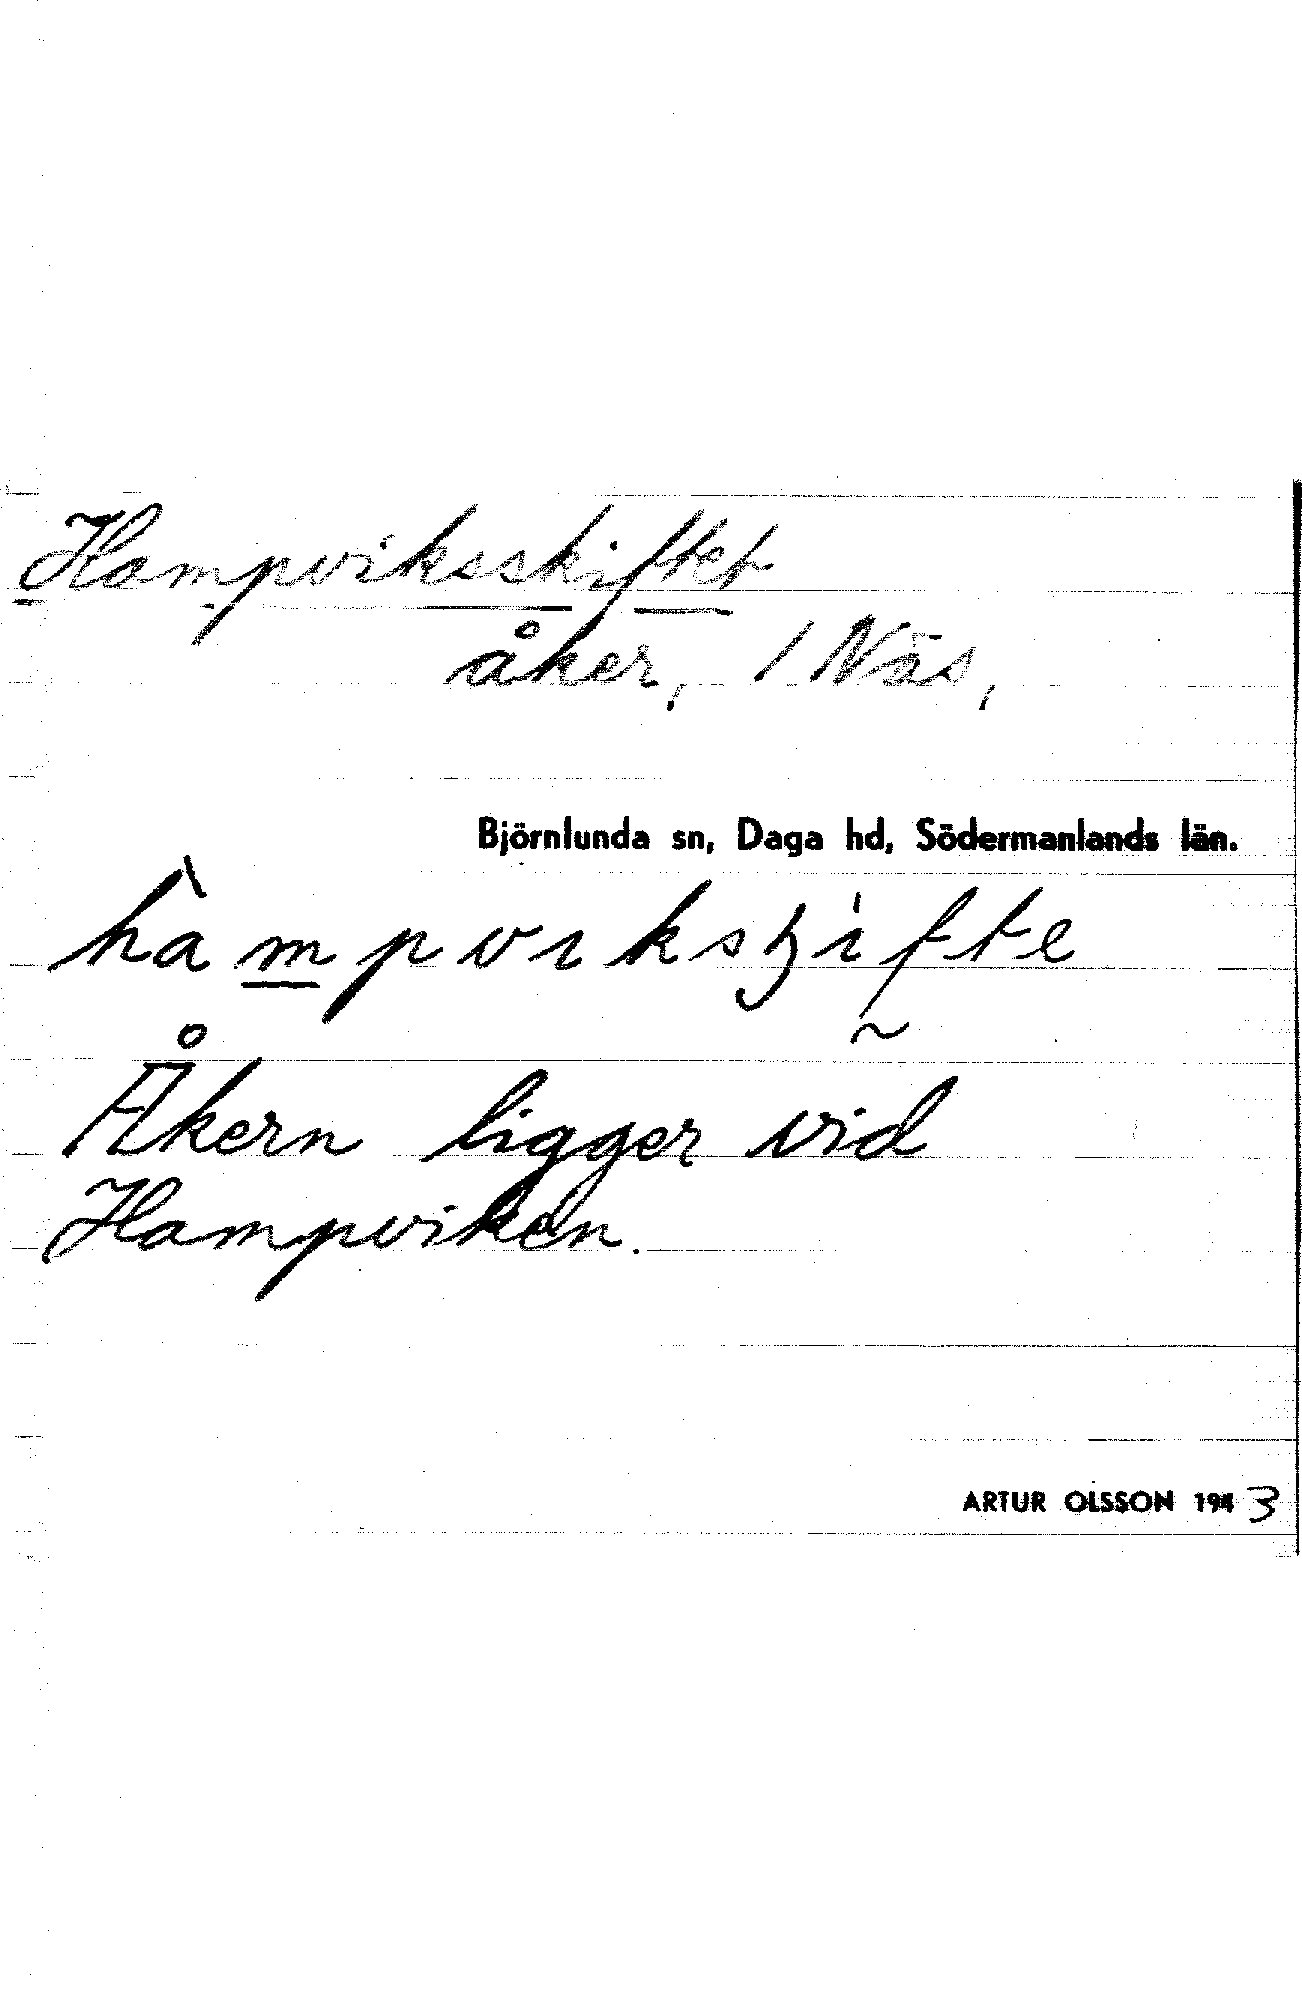 Hampviksskiftet
åker, / Näs,
Björnlunda sn, Daga hd, Södermanlands län.
Åkern ligger vid
Hampviken.
ARTUR OLSSON 1943